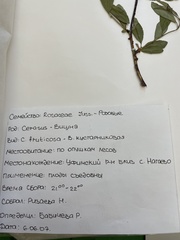 Семейство: Rosaceae Juss - Розовые
Род: Cerasus - Вишня
Вид: C. fruticosa - В. кустарниковая
Местообитание: по опушкам лесов
Местонахождение: Учалинский р-н близ с. Наурузово
Применение: плоды съедобны
Время сбора: 21⁰⁰ - 22⁰⁰
Собрал: Рысаева Н.
Определил: Вахитова Р.
Дата: 6.06.07.